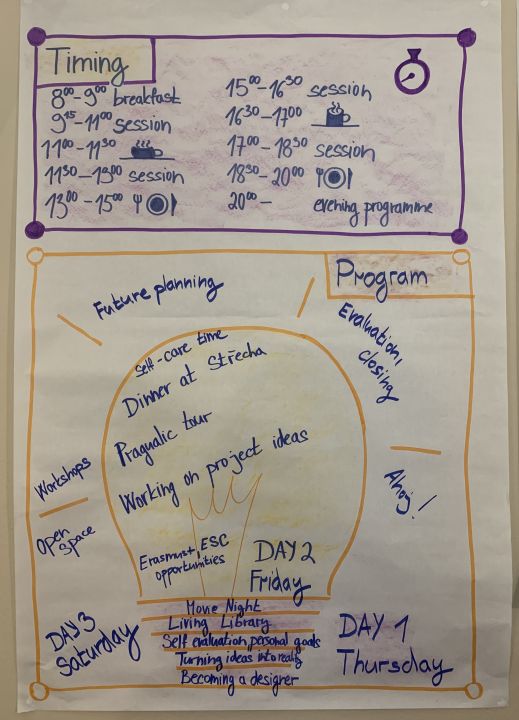 Timing
8⁰⁰-9⁰⁰ breakfast
9¹⁵-11⁰⁰ session
11⁰⁰-11³⁰
11³⁰-13⁰⁰ session
13⁰⁰-15⁰⁰
15⁰⁰-16³⁰ session
16³⁰-17⁰⁰
17⁰⁰-18³⁰ session
18³⁰-20⁰⁰
20⁰⁰- evening programme
Program
Future planning
Evaluation,
closing
Self-care time
Dinner at Střecha
Pragulic tour
Working on project ideas
Workshops
Open
Space
Ahoj!
Erasmus+, ESC
opportunities
DAY 2
Friday
Movie Night
Living Library
Self evaluation, personal goals
Turning ideas into reality
Becoming a designer
DAY 3
Saturday
DAY 1
Thursday